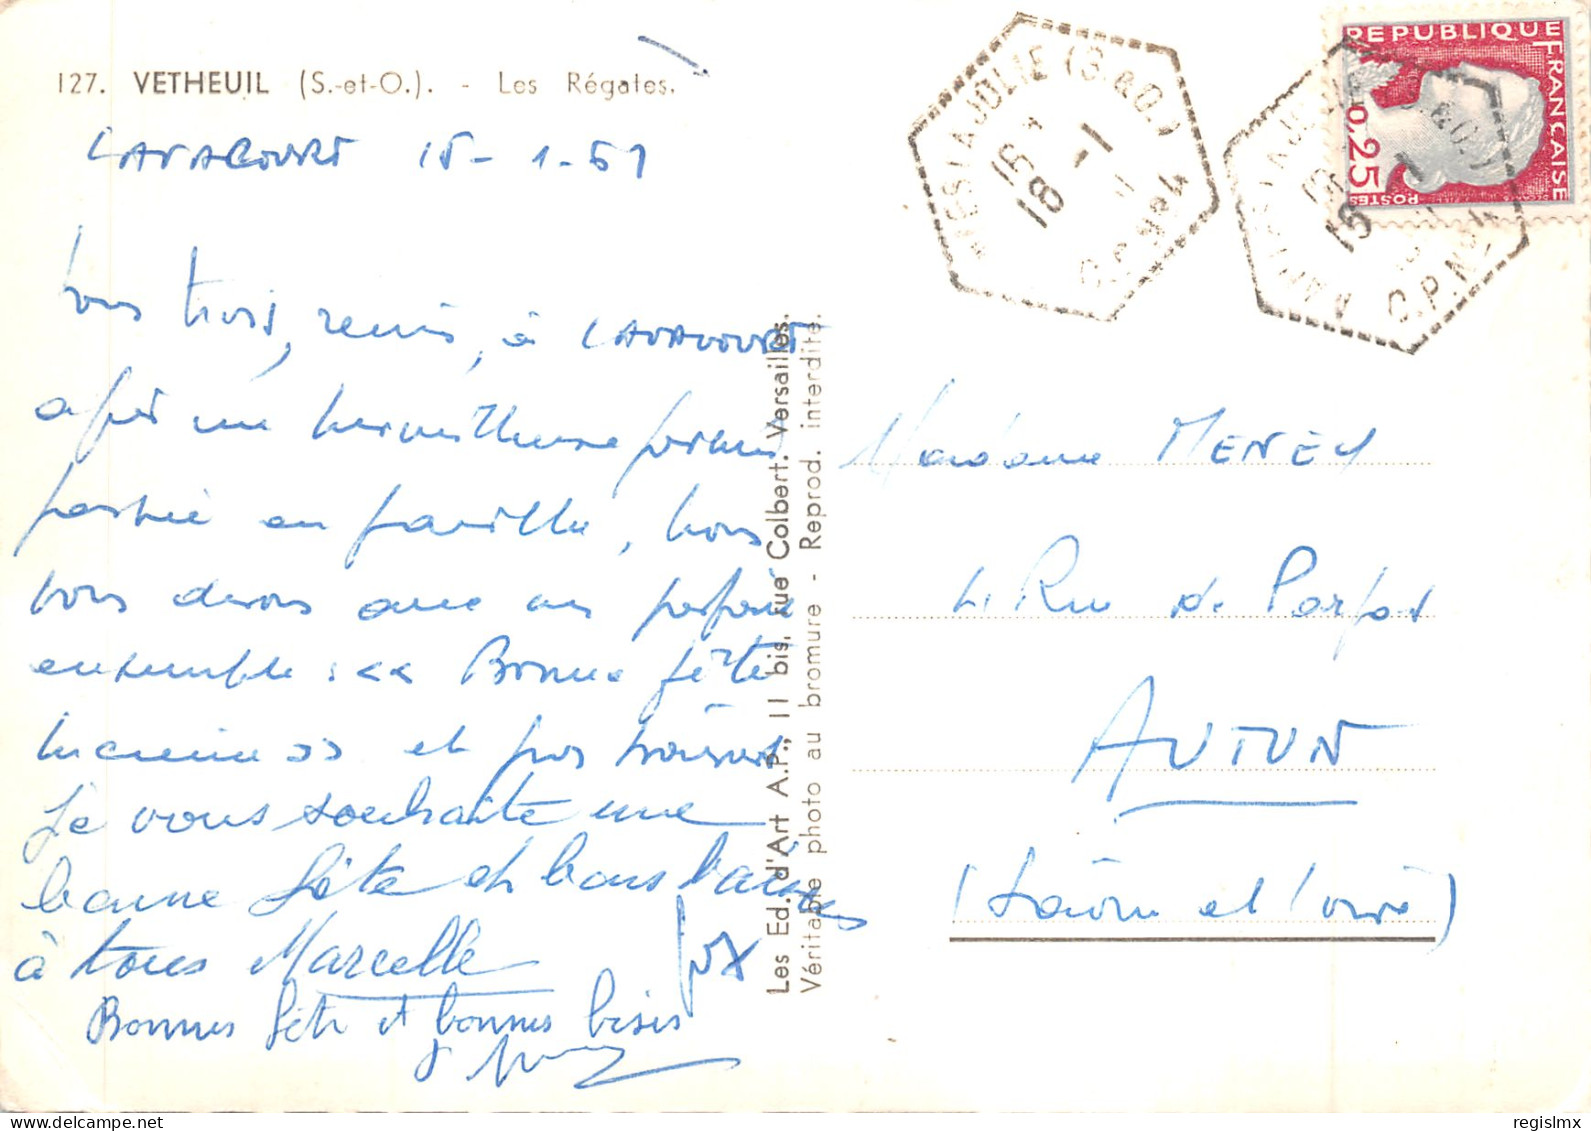 127. VETHEUIL (S.-et-O.). - Les Régates.
LAVACOURT 15-1-61
Tous trois, réunis, à LAVACOURT
après une merveilleuse journée
passée en famille, nous
vous disons avec un parfait
ensemble : << Bonne fête
>> et gros baisers
Je vous souhaite une
bonne fête et bons baisers
à tous Marcelle
Bonnes fête et bonnes bises
Les Ed. d'Art A.P., 11 bis, rue Colbert. Versailles.
Véritable photo au bromure - Reprod. interdite.
MANTES LA JOLIE (S.&O.)
16 H
18 -1
C.P. N°4
REPUBLIQUE FRANÇAISE
0,25
POSTES
MANTES LA JOLIE (S.&O.)
C.P. N°4
Madame MENEY
4 Rue de Parpas
AUTUN
(Saône et Loire)
regislmx
www.delcampe.net